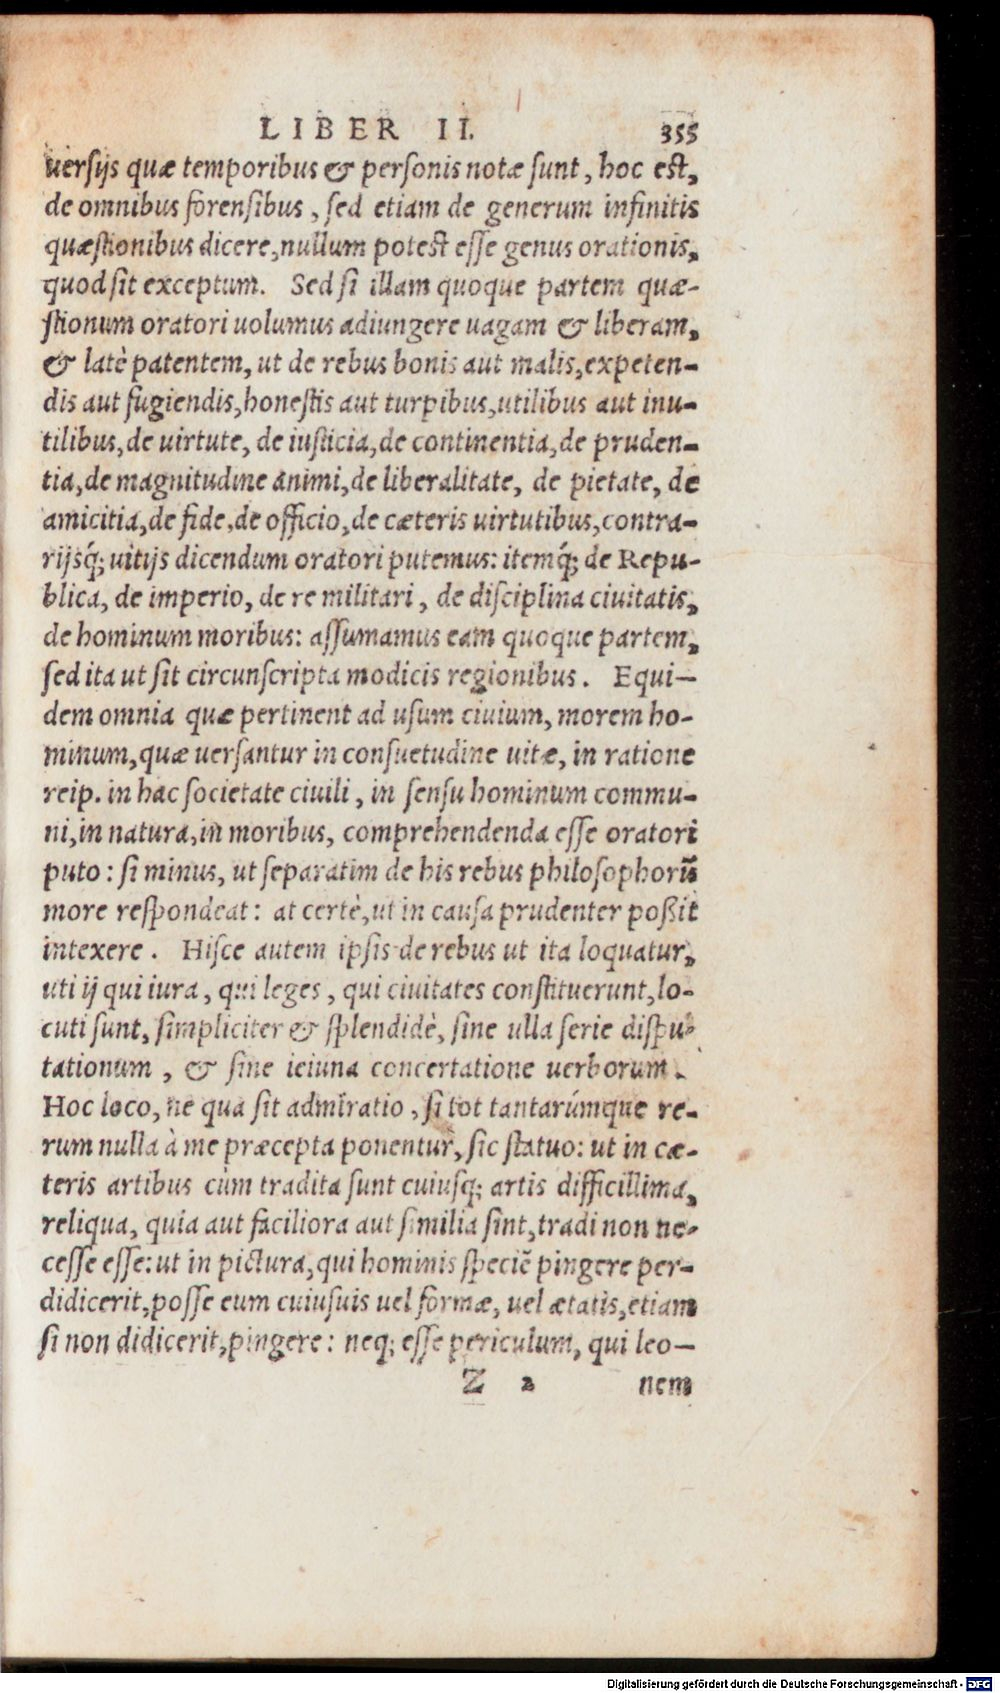 LIBER II. 355
uersijs quæ temporibus & personis notæ sunt, hoc est,
de omnibus forensibus, sed etiam de generum infinitis
quæstionibus dicere, nullum potest esse genus orationis,
quod sit exceptum. Sed si illam quoque partem quæ-
stionum oratori uolumus adiungere uagam & liberam,
& latè patentem, ut de rebus bonis aut malis, expeten-
dis aut fugiendis, honestis aut turpibus, utilibus aut inu-
tilibus, de uirtute, de iusticia, de continentia, de pruden-
tia, de magnitudine animi, de liberalitate, de pietate, de
amicitia, de fide, de officio, de cæteris uirtutibus, contra-
rijsq́; uitijs dicendum oratori putemus: itemq́; de Repu-
blica, de imperio, de re militari, de disciplina ciuitatis,
de hominum moribus: assumamus eam quoque partem,
sed ita ut sit circunscripta modicis regionibus. Equi-
dem omnia quæ pertinent ad usum ciuium, morem ho-
minum, quæ uersantur in consuetudine uitæ, in ratione
reip. in hac societate ciuili, in sensu hominum commu-
ni, in natura, in moribus, comprehendenda esse oratori
puto: si minus, ut separatim de his rebus philosophorũ
more respondeat: at certè, ut in causa prudenter poßit
intexere. Hisce autem ipsis de rebus ut ita loquatur,
uti ij qui iura, qui leges, qui ciuitates constituerunt, lo-
cuti sunt, simpliciter & splendidè, sine ulla serie dispu-
tationum, & sine ieiuna concertatione uerborum.
Hoc loco, ne qua sit admiratio, si tot tantarúmque re-
rum nulla à me præcepta ponentur, sic statuo: ut in cæ-
teris artibus cùm tradita sunt cuiusq; artis difficillima,
reliqua, quia aut faciliora aut similia sint, tradi non ne-
cesse esse: ut in pictura, qui hominis speciẽ pingere per-
didicerit, posse eum cuiusuis uel formæ, uel ætatis, etiam
si non didicerit, pingere: neq; esse periculum, qui leo-
Z 2 nem
Digitalisierung gefördert durch die Deutsche Forschungsgemeinschaft - DFG